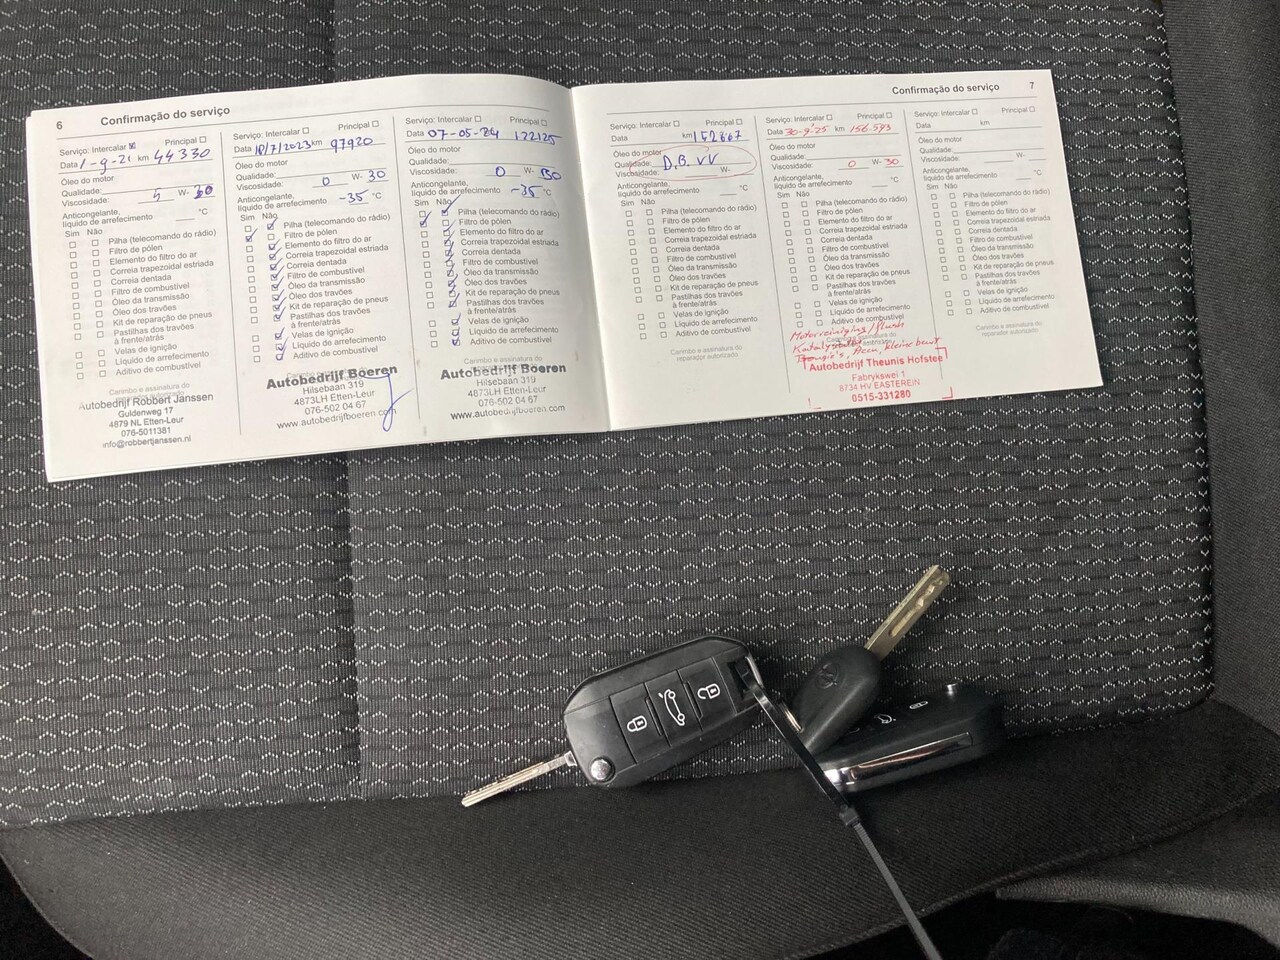 6 Confirmação do serviço
Serviço: Intercalar ☒ Principal ☐
Data 1-9-21 km 44330
Óleo do motor
Qualidade:
Viscosidade: 5 W- 30
Anticongelante,
líquido de arrefecimento °C
Sim Não
Pilha (telecomando do rádio)
Filtro de pólen
Elemento do filtro do ar
Correia trapezoidal estriada
Correia dentada
Filtro de combustível
Óleo da transmissão
Óleo dos travões
Kit de reparação de pneus
Pastilhas dos travões
à frente/atrás
Velas de ignição
Líquido de arrefecimento
Aditivo de combustível
Carimbo e assinatura do
reparador autorizado
Autobedrijf Robbert Janssen
Guldenweg 17
4879 NL Etten-Leur
076-5011381
info@robbertjanssen.nl
Serviço: Intercalar ☐ Principal ☐
Data 18/7/2023 km 97920
Óleo do motor
Qualidade:
Viscosidade: 0 W- 30
Anticongelante,
líquido de arrefecimento -35 °C
Sim Não
Pilha (telecomando do rádio)
Filtro de pólen
Elemento do filtro do ar
Correia trapezoidal estriada
Correia dentada
Filtro de combustível
Óleo da transmissão
Óleo dos travões
Kit de reparação de pneus
Pastilhas dos travões
à frente/atrás
Velas de ignição
Líquido de arrefecimento
Aditivo de combustível
Autobedrijf Boeren
Hilsebaan 319
4873LH Etten-Leur
076-502 04 67
www.autobedrijfboeren.com
Serviço: Intercalar ☐ Principal ☐
Data 07-05-24 122125
Óleo do motor
Qualidade:
Viscosidade: 0 W- 30
Anticongelante,
líquido de arrefecimento -35 °C
Sim Não
Pilha (telecomando do rádio)
Filtro de pólen
Elemento do filtro do ar
Correia trapezoidal estriada
Correia dentada
Filtro de combustível
Óleo da transmissão
Óleo dos travões
Kit de reparação de pneus
Pastilhas dos travões
à frente/atrás
Velas de ignição
Líquido de arrefecimento
Aditivo de combustível
Carimbo e assinatura do
Autobedrijf Boeren
Hilsebaan 319
4873LH Etten-Leur
076-502 04 67
www.autobedrijfboeren.com
Confirmação do serviço 7
Serviço: Intercalar ☐ Principal ☐
Data km
Óleo do motor
Qualidade: D.B. VV
Viscosidade: W-
Anticongelante,
líquido de arrefecimento °C
Sim Não
Pilha (telecomando do rádio)
Filtro de pólen
Elemento do filtro do ar
Correia trapezoidal estriada
Correia dentada
Filtro de combustível
Óleo da transmissão
Óleo dos travões
Kit de reparação de pneus
Pastilhas dos travões
à frente/atrás
Velas de ignição
Líquido de arrefecimento
Aditivo de combustível
Carimbo e assinatura do
reparador autorizado
Serviço: Intercalar ☐ Principal ☐
Data 30-9-'25 km 156.593
Óleo do motor
Qualidade:
Viscosidade: 0 W- 30
Anticongelante,
líquido de arrefecimento °C
Sim Não
Pilha (telecomando do rádio)
Filtro de pólen
Elemento do filtro do ar
Correia trapezoidal estriada
Correia dentada
Filtro de combustível
Óleo da transmissão
Óleo dos travões
Kit de reparação de pneus
Pastilhas dos travões
à frente/atrás
Velas de ignição
Líquido de arrefecimento
Aditivo de combustível
Motorreiniging/Flush
kleine beurt
Autobedrijf Theunis Hofstee
Fabrykswei 1
8734 HV EASTEREIN
0515-331280
Serviço: Intercalar ☐ Principal ☐
Data km
Óleo do motor
Qualidade:
Viscosidade: W-
Anticongelante,
líquido de arrefecimento °C
Sim Não
Pilha (telecomando do rádio)
Filtro de pólen
Elemento do filtro do ar
Correia trapezoidal estriada
Correia dentada
Filtro de combustível
Óleo da transmissão
Óleo dos travões
Kit de reparação de pneus
Pastilhas dos travões
à frente/atrás
Velas de ignição
Líquido de arrefecimento
Aditivo de combustível
Carimbo e assinatura do
reparador autorizado